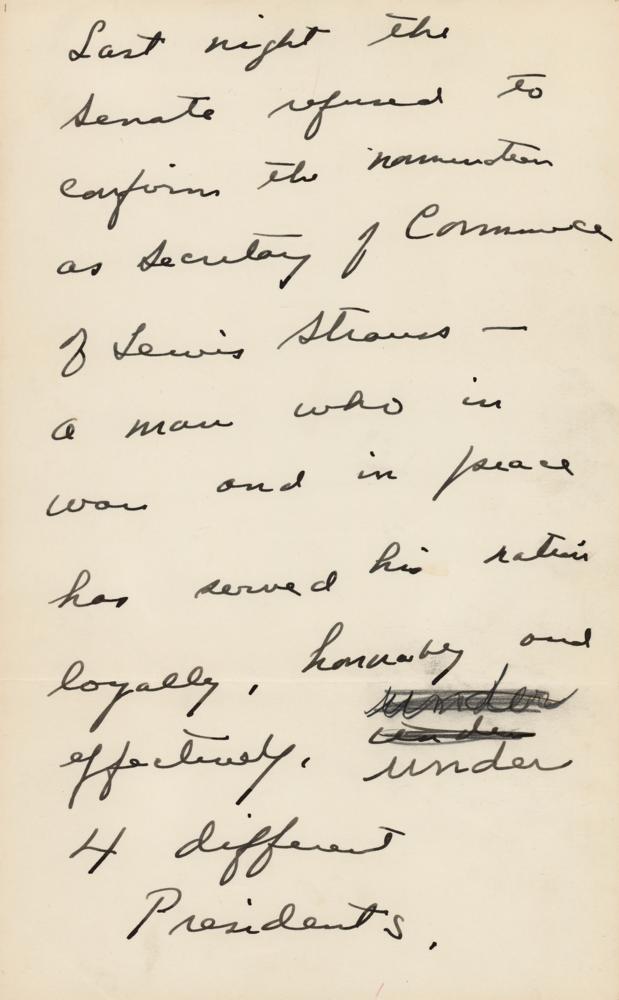 Last night the
Senate refused to
confirm the nomination
as Secretary of Commerce
of Lewis Strauss —
a man who in
war and in peace
has served his nation
loyally, honorably and
under
under
effectively, under
4 different
Presidents.